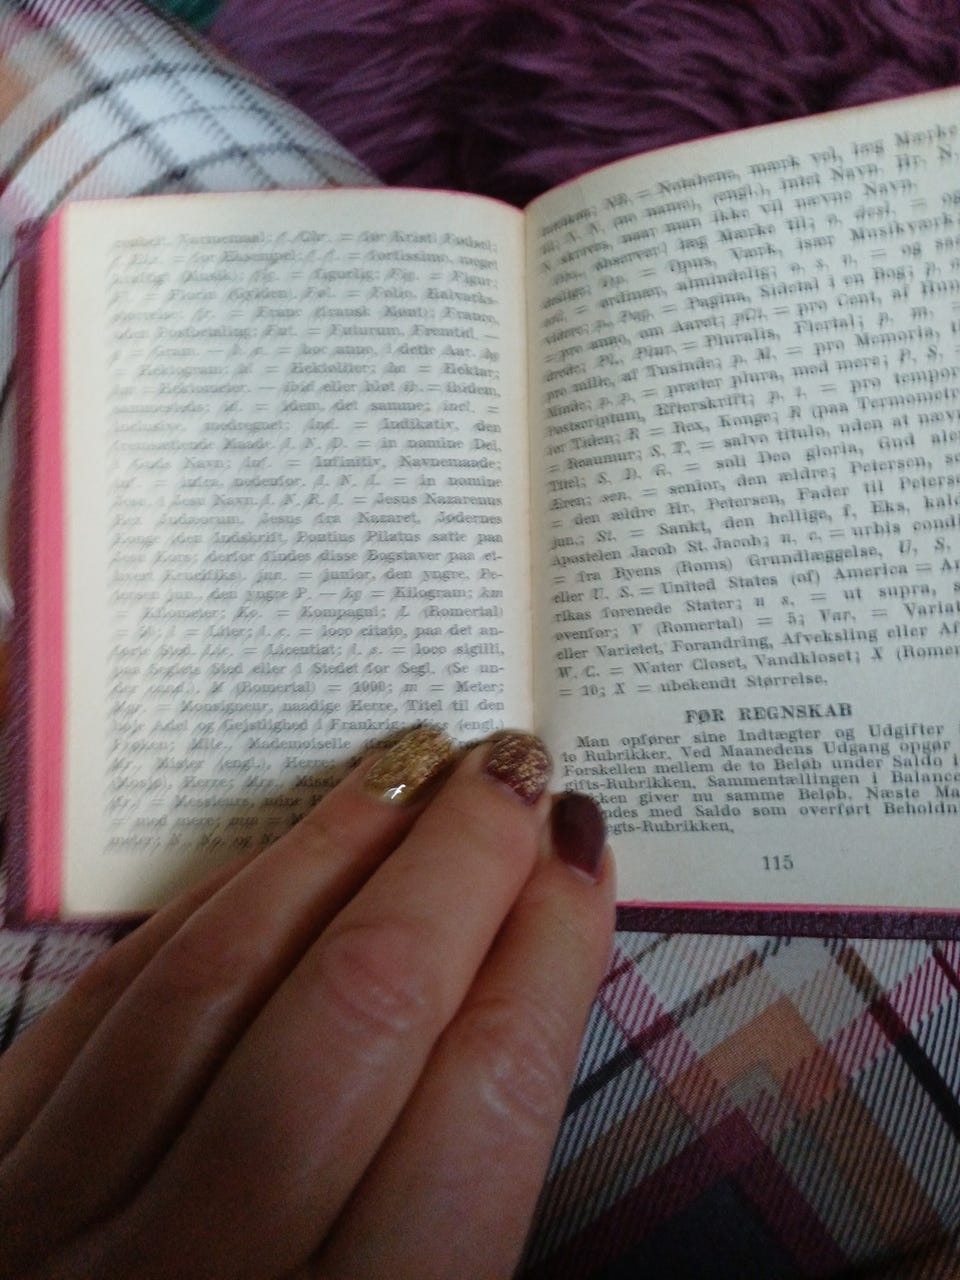 Nutnemaal; f. Chr. = før Kristi Fødsel;
f. Eks. = for Eksempel; f. f. = fortissimo, meget
kraftig (Musik); fig. = figurlig; Fig. = Figur;
Fl. = Florin (Gylden). Fol. = Folio, Halvarks-
størrelse; fr. = Franc (fransk Mønt); Franco,
uden Postbetaling; Fut. = Futurum, Fremtid. —
g = Gram. — h. a. = hoc anno, i dette Aar. hg
= Hektogram; hl = Hektoliter; ha = Hektar;
hm = Hektometer. — ibid eller blot ib. = ibidem,
sammesteds; id. = idem, det samme; incl. =
inclusive, medregnet; Ind. = Indikativ, den
fremsættende Maade. I. N. D. = in nomine Dei,
i Guds Navn; Inf. = Infinitiv, Navnemaade;
inf. = infra, nedenfor. I. N. I. = in nomine
Jesu, i Jesu Navn. I. N. R. I. = Jesus Nazarenus
Rex Judæorum, Jesus fra Nazaret, Jødernes
Konge (den Indskrift, Pontius Pilatus satte paa
Jesu Kors; derfor findes disse Bogstaver paa et-
hvert Krucifiks). jun. = junior, den yngre, Pe-
tersen jun., den yngre P. — kg = Kilogram; km
= Kilometer; Ko. = Kompagni; L (Romertal)
= 50; l = Liter; l. c. = loco citato, paa det an-
førte Sted. Lic. = Licentiat; l. s. = loco sigilli,
paa Seglets Sted eller i Stedet for Segl. (Se un-
der cand.). M (Romertal) = 1000; m = Meter;
Mgr. = Monsigneur, naadige Herre, Titel til den
høje Adel og Gejstlighed i Frankrig; Miss (engl.)
Frøken; Mlle., Mademoiselle
Mr., Mister (engl.), Herre;
(Mosjø), Herre; Mrs., Missis
Hr. = Messieurs, mine
= med mere; mm =
meter; N., No. og Nr.
NB. = Notabene, mærk vel, læg Mærke
til; N. N. (no name), (engl.), intet Navn, Hr. N.
N skrives, naar man ikke vil nævne Navn.
observer! læg Mærke til; o. desl. = og
deslige; Op. = Opus, Værk, især Musikværk;
ord. = ordinær, almindelig; o. s. v. = og saa
videre; p., Pag. = Pagina, Sidetal i en Bog; p. a.
= pro anno, om Aaret; pCt. = pro Cent, af Hun-
drede; Pl., Plur. = Pluralis, Flertal; p. m. =
pro mille, af Tusinde; p. M. = pro Memoria, til
Minde; p. p. = præter plura, med mere; P. S. =
Postscriptum, Efterskrift; p. t. = pro tempore
for Tiden; R = Rex, Konge; R (paa Termometre)
= Reaumur; S. T. = salvo titulo, uden at nævne
Titel; S. D. G. = soli Deo gloria, Gud alene
Æren; sen. = senior, den ældre; Petersen, sen.
= den ældre Hr. Petersen, Fader til Petersen
jun.; St. = Sankt, den hellige, f. Eks. kaldes
Apostelen Jacob St. Jacob; u. c. = urbis condita
= fra Byens (Roms) Grundlæggelse, U. S. A.
eller U. S. = United States (of) America = Ame-
rikas forenede Stater; u s. = ut supra, som
ovenfor; V (Romertal) = 5; Var. = Variation
eller Varietet, Forandring, Afveksling eller Af-
W. C. = Water Closet, Vandkloset; X (Romertal)
= 10; X = ubekendt Størrelse.
FØR REGNSKAB
Man opfører sine Indtægter og Udgifter
to Rubrikker. Ved Maanedens Udgang opgør
Forskellen mellem de to Beløb under Saldo i
gifts-Rubrikken. Sammentællingen i Balance-
kken giver nu samme Beløb. Næste Ma
ndes med Saldo som overført Beholdn
egts-Rubrikken.
115